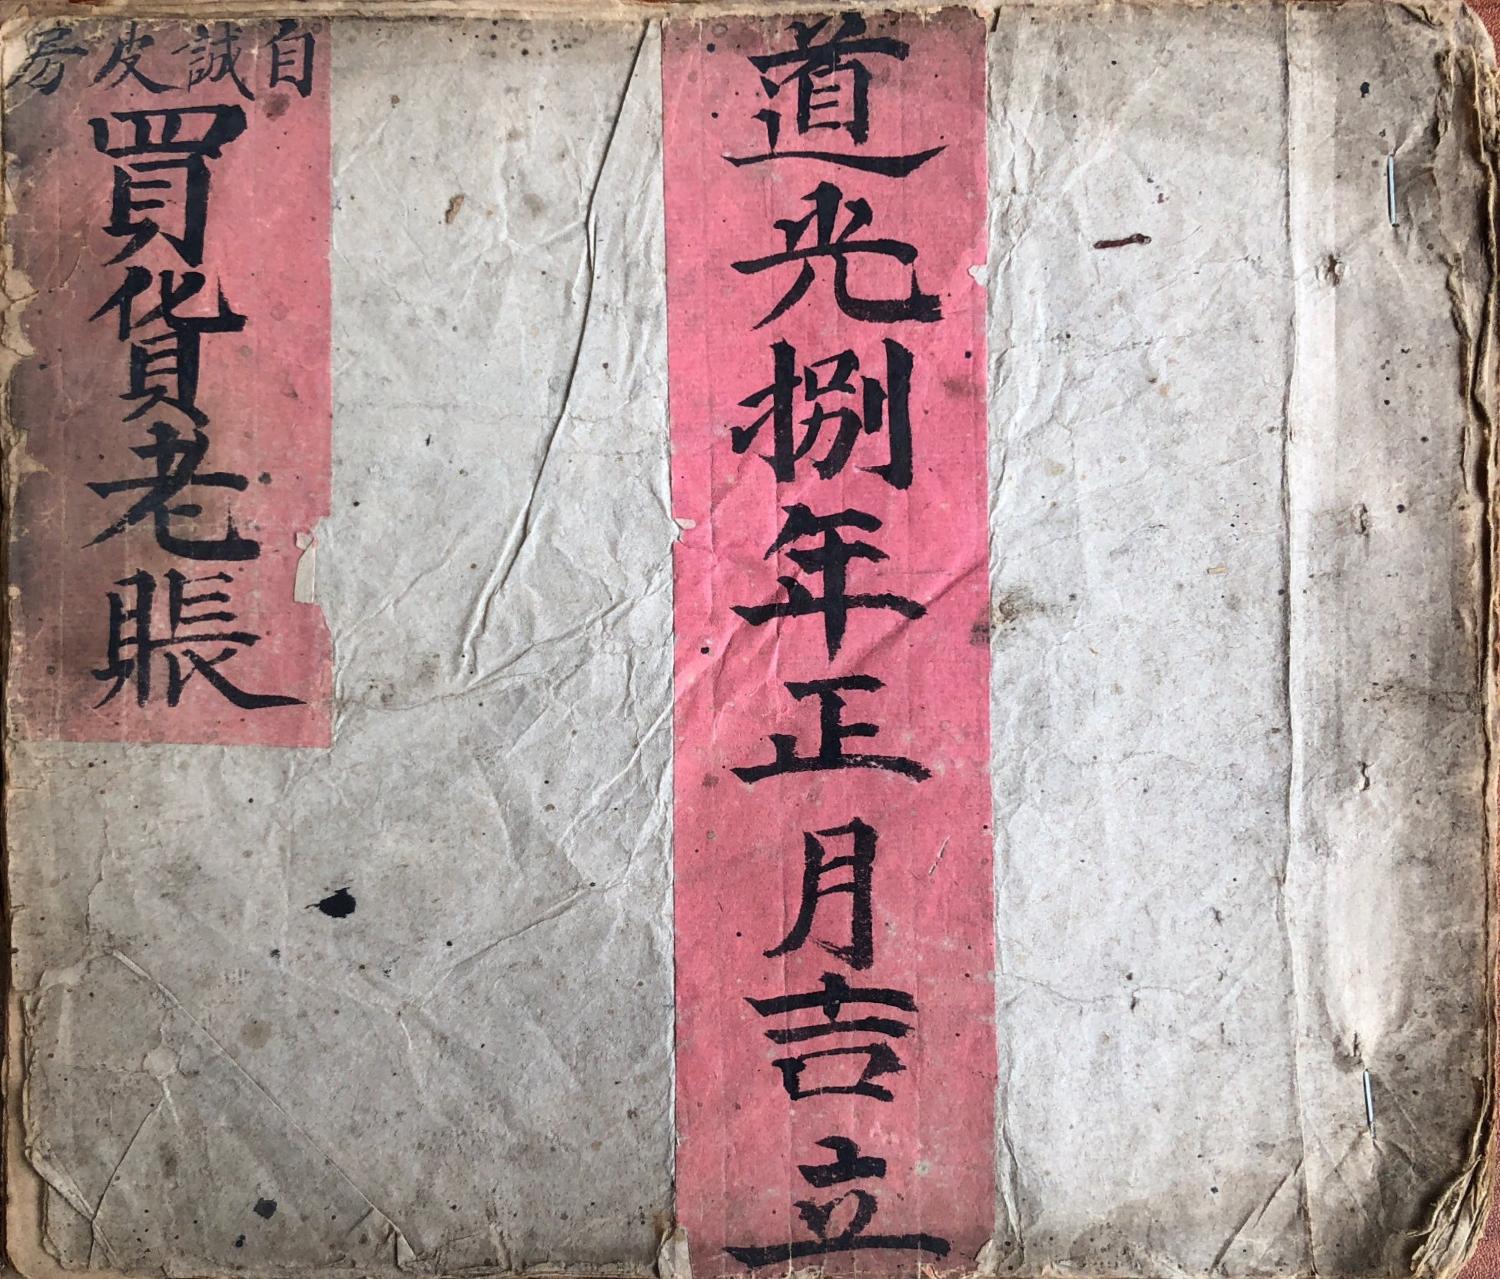 道光捌年正月吉立
自誠皮房
買貨老賬